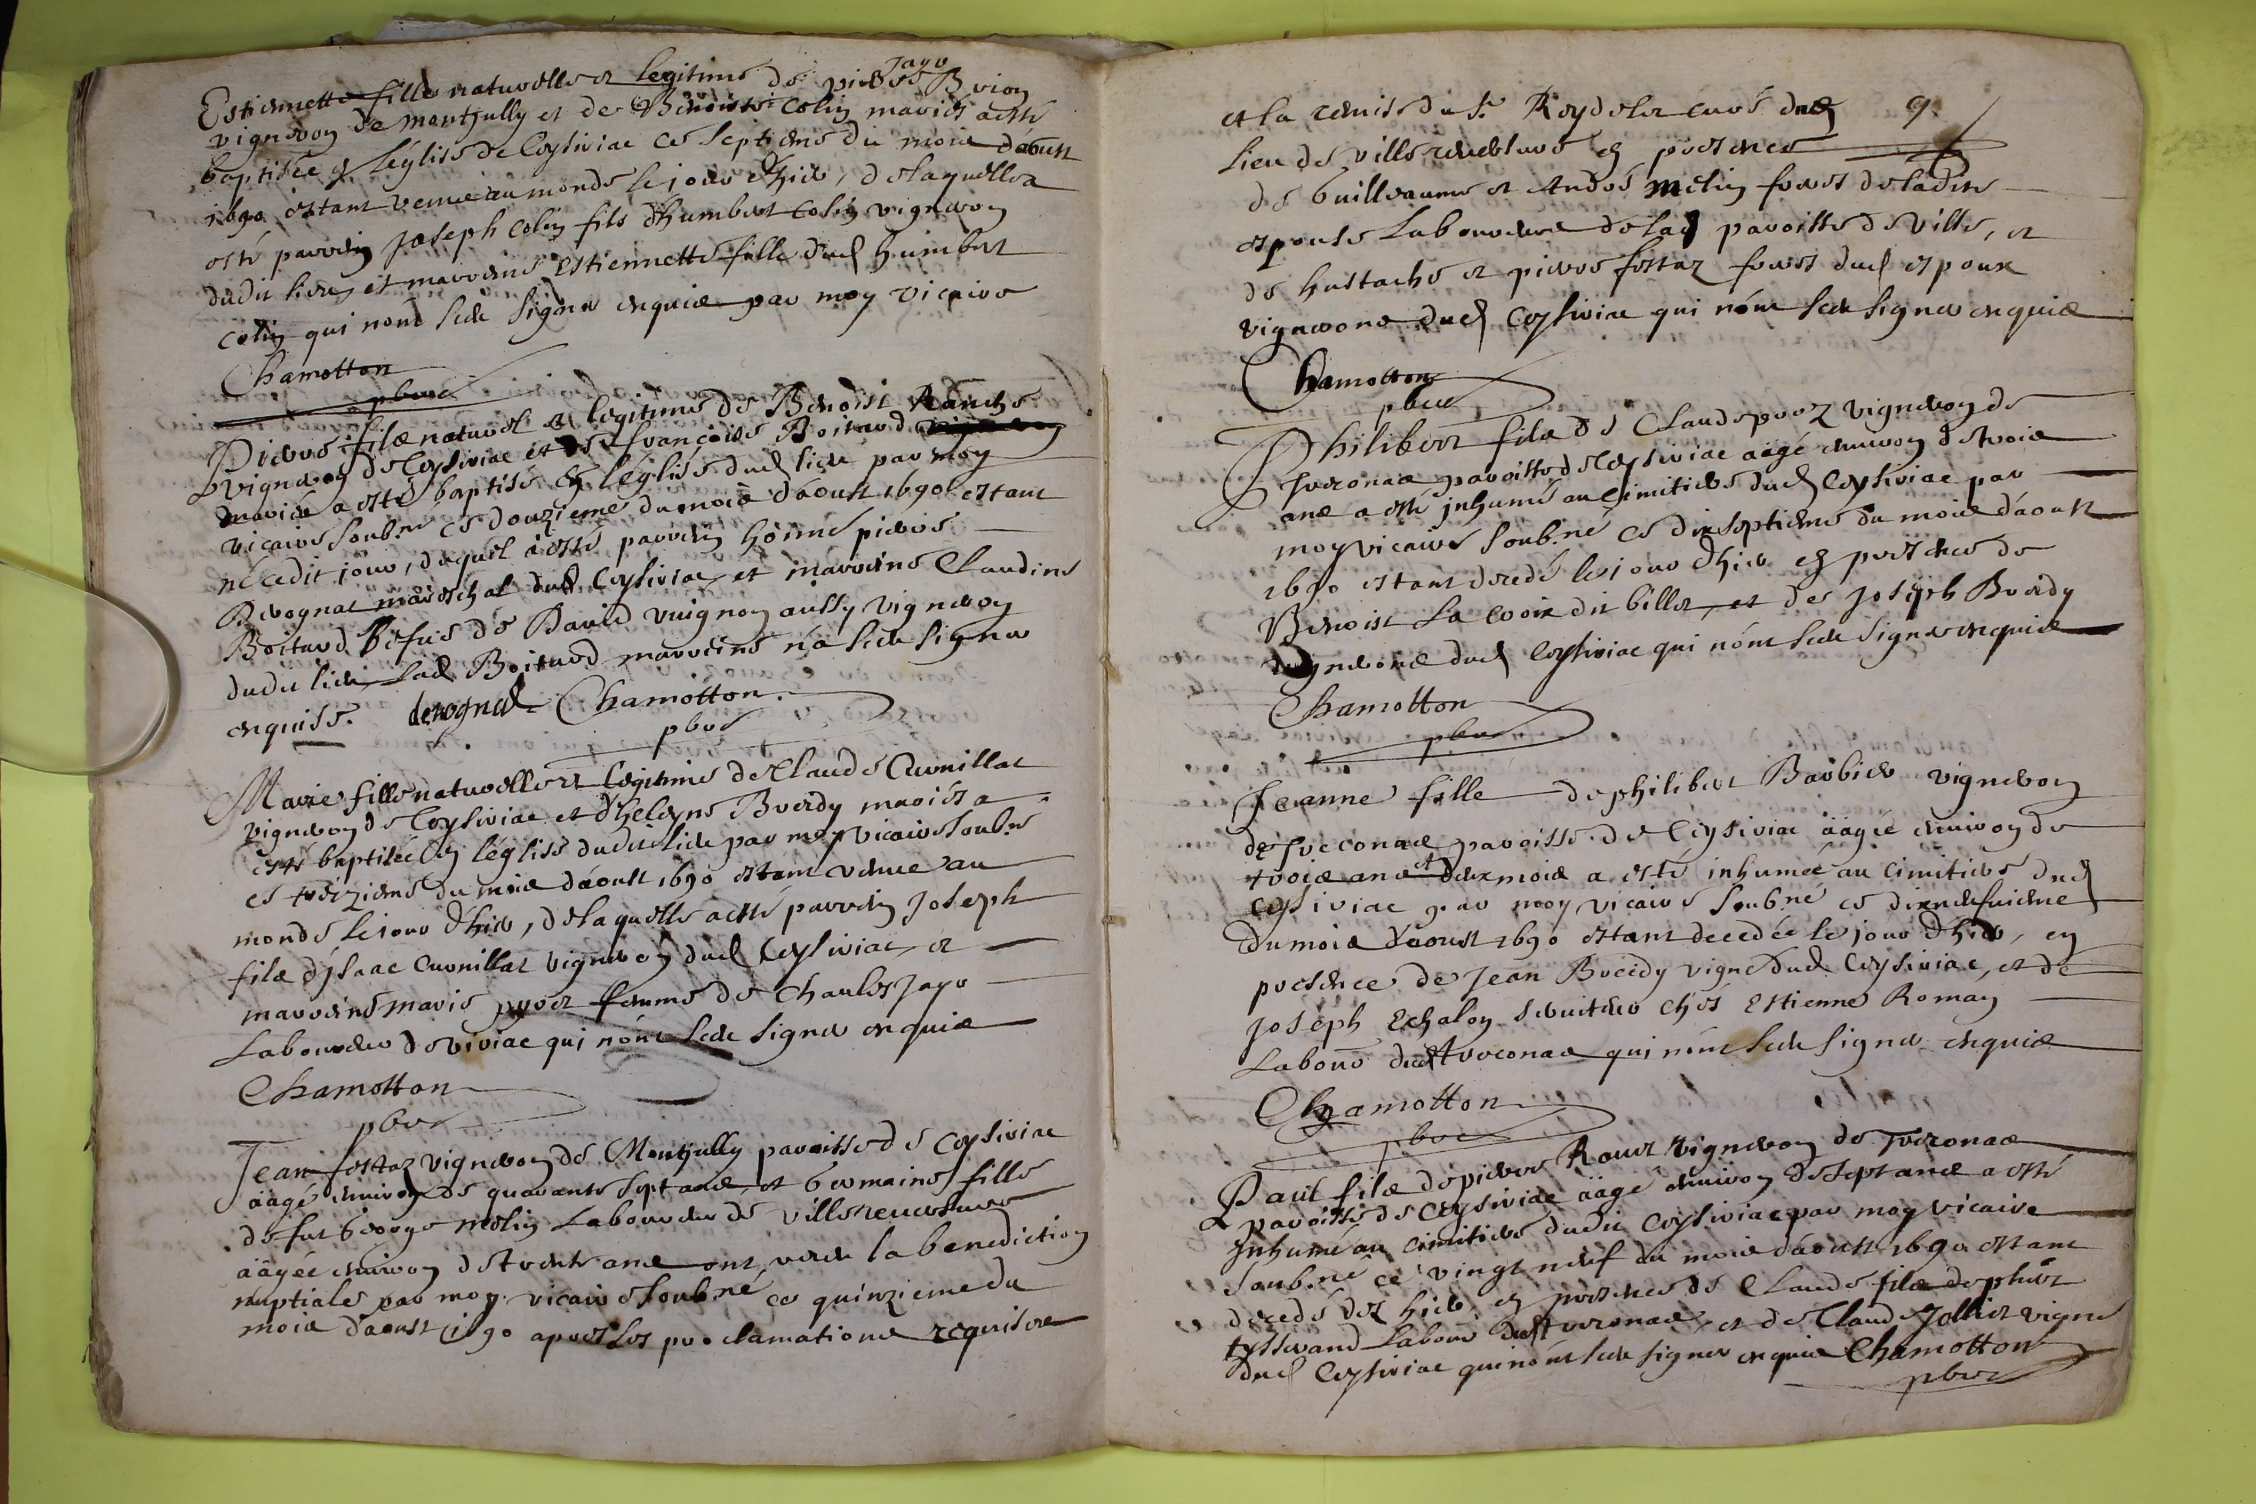 Estiennette fille naturelle et legitime de pierre Jayo Brion
vigneron de montjully et de Benoiste Colin mariés a esté
baptisée en léglise de Ceysiriac ce septieme du mois dáoust
1690 estant venue au monde le jour d'hier, de laquelle a
esté parrein Joseph Colin fils d'humbert Colin vigneron
dudit lieu, et marreine Estiennette fille dud humbert
Colin qui nont sceu signer enquis par moy vicaire
Chamotton
pbre
Pierre fils naturel et legitime de Benoist Ranche
vigneron de Ceysiriac et de françoise Boitard
mariés a esté baptisé en léglise dud lieu par moy
vicaire soub.né ce douzieme du mois dáoust 1690 estant
né cedit jour, duquel a esté parrein honné pierre
Derognat mareschal dud Ceysiriac et marreine Claudine
Boitard de David vuignon aussy vigneron
dudit lieu, lad Boitard marreine n'a sceu signer
enquise. derognat Chamotton
pbre
Marie fille naturelle et legitime de Claude Curnillat
vigneron de Ceysiriac et d'heleyne Breidy mariés a
esté baptisée en léglise dudit lieu par moy vicaire soubné
ce treizieme du mois dáoust 1690 estant venue au
monde le jour d'hier, de laquelle a esté parrein Joseph
fils d'Isaac Curnillat vigneron dud Ceysiriac, et
marreine marie pyvet femme de Charles Jayo
Laboureur de viriac qui nónt sceu signer enquis
Chamotton
pbre
Jean fostaz vigneron de Montjully paroisse de Ceysiriac
ääagé environ de quarante sept ans, et Germaine fille
de fut George melin Laboureur de villereversure
äagée environ de trente ans ont receu la benediction
nuptiale par moy vicaire soub.né, ce quinzieme du
mois d'aoust 1690 apres les proclamations requises
et la remise du Sr. Reydelet curé dud 9.
Lieu de villereversure en presence
de Guilleaume et André melin freres de ladite
espouse Laboureurs de lad paroisse de ville, et
de hustache et pierre fostaz freres dud espoux
vignerons dud Ceysiriac qui nónt sceu signer enquis
Chamotton
pbre
Philibert fils de Claude perez vigneron de
treconnas paroisse de Ceysiriac äagé environ de trois
ans a esté inhumé au cimitiere dud Ceysiriac par
moy vicaire soub.né ce dixseptieme du mois dáoust
1690 estant decedé le jour d'hier en presence de
Benoist La croix dit billet, et de Joseph Breidy
vignerons dud Ceysiriac qui nónt sceu signer enquis
Chamotton
pbre
Jeanne fille de philibert Barbier vigneron
de treconnas paroisse de Ceysiriac äagée environ de
trois ans et deux mois a esté inhumée au cimitiere dud
Ceysiriac par moy vicaire soub.né ce dixneufvieme
du mois d'aoust 1690 estant decedée le jour d'hier, en
presence de Jean Breidy vigne dud Ceysiriac, et de
Joseph Echalon serviteur chés Estienne Roman
Labour dud treconnas qui nónt sceu signer enquis
Chamotton
pbre
Paul fils de pierre Ravet vigneron de treconnas
paroisse de Ceysiriac äagé environ de sept ans a esté
Inhumé au cimitiere dudit Ceysiriac par moy vicaire
soub.né ce vingt neuf du mois dáoust 1690 estant
decedé dez hier, en presence de Claude fils de phibt
tysserand Labour dud treconnas, et de Claude Jolliet vigne
dud Ceysiriac qui nónt sceu signer enquis Chamotton
pbre